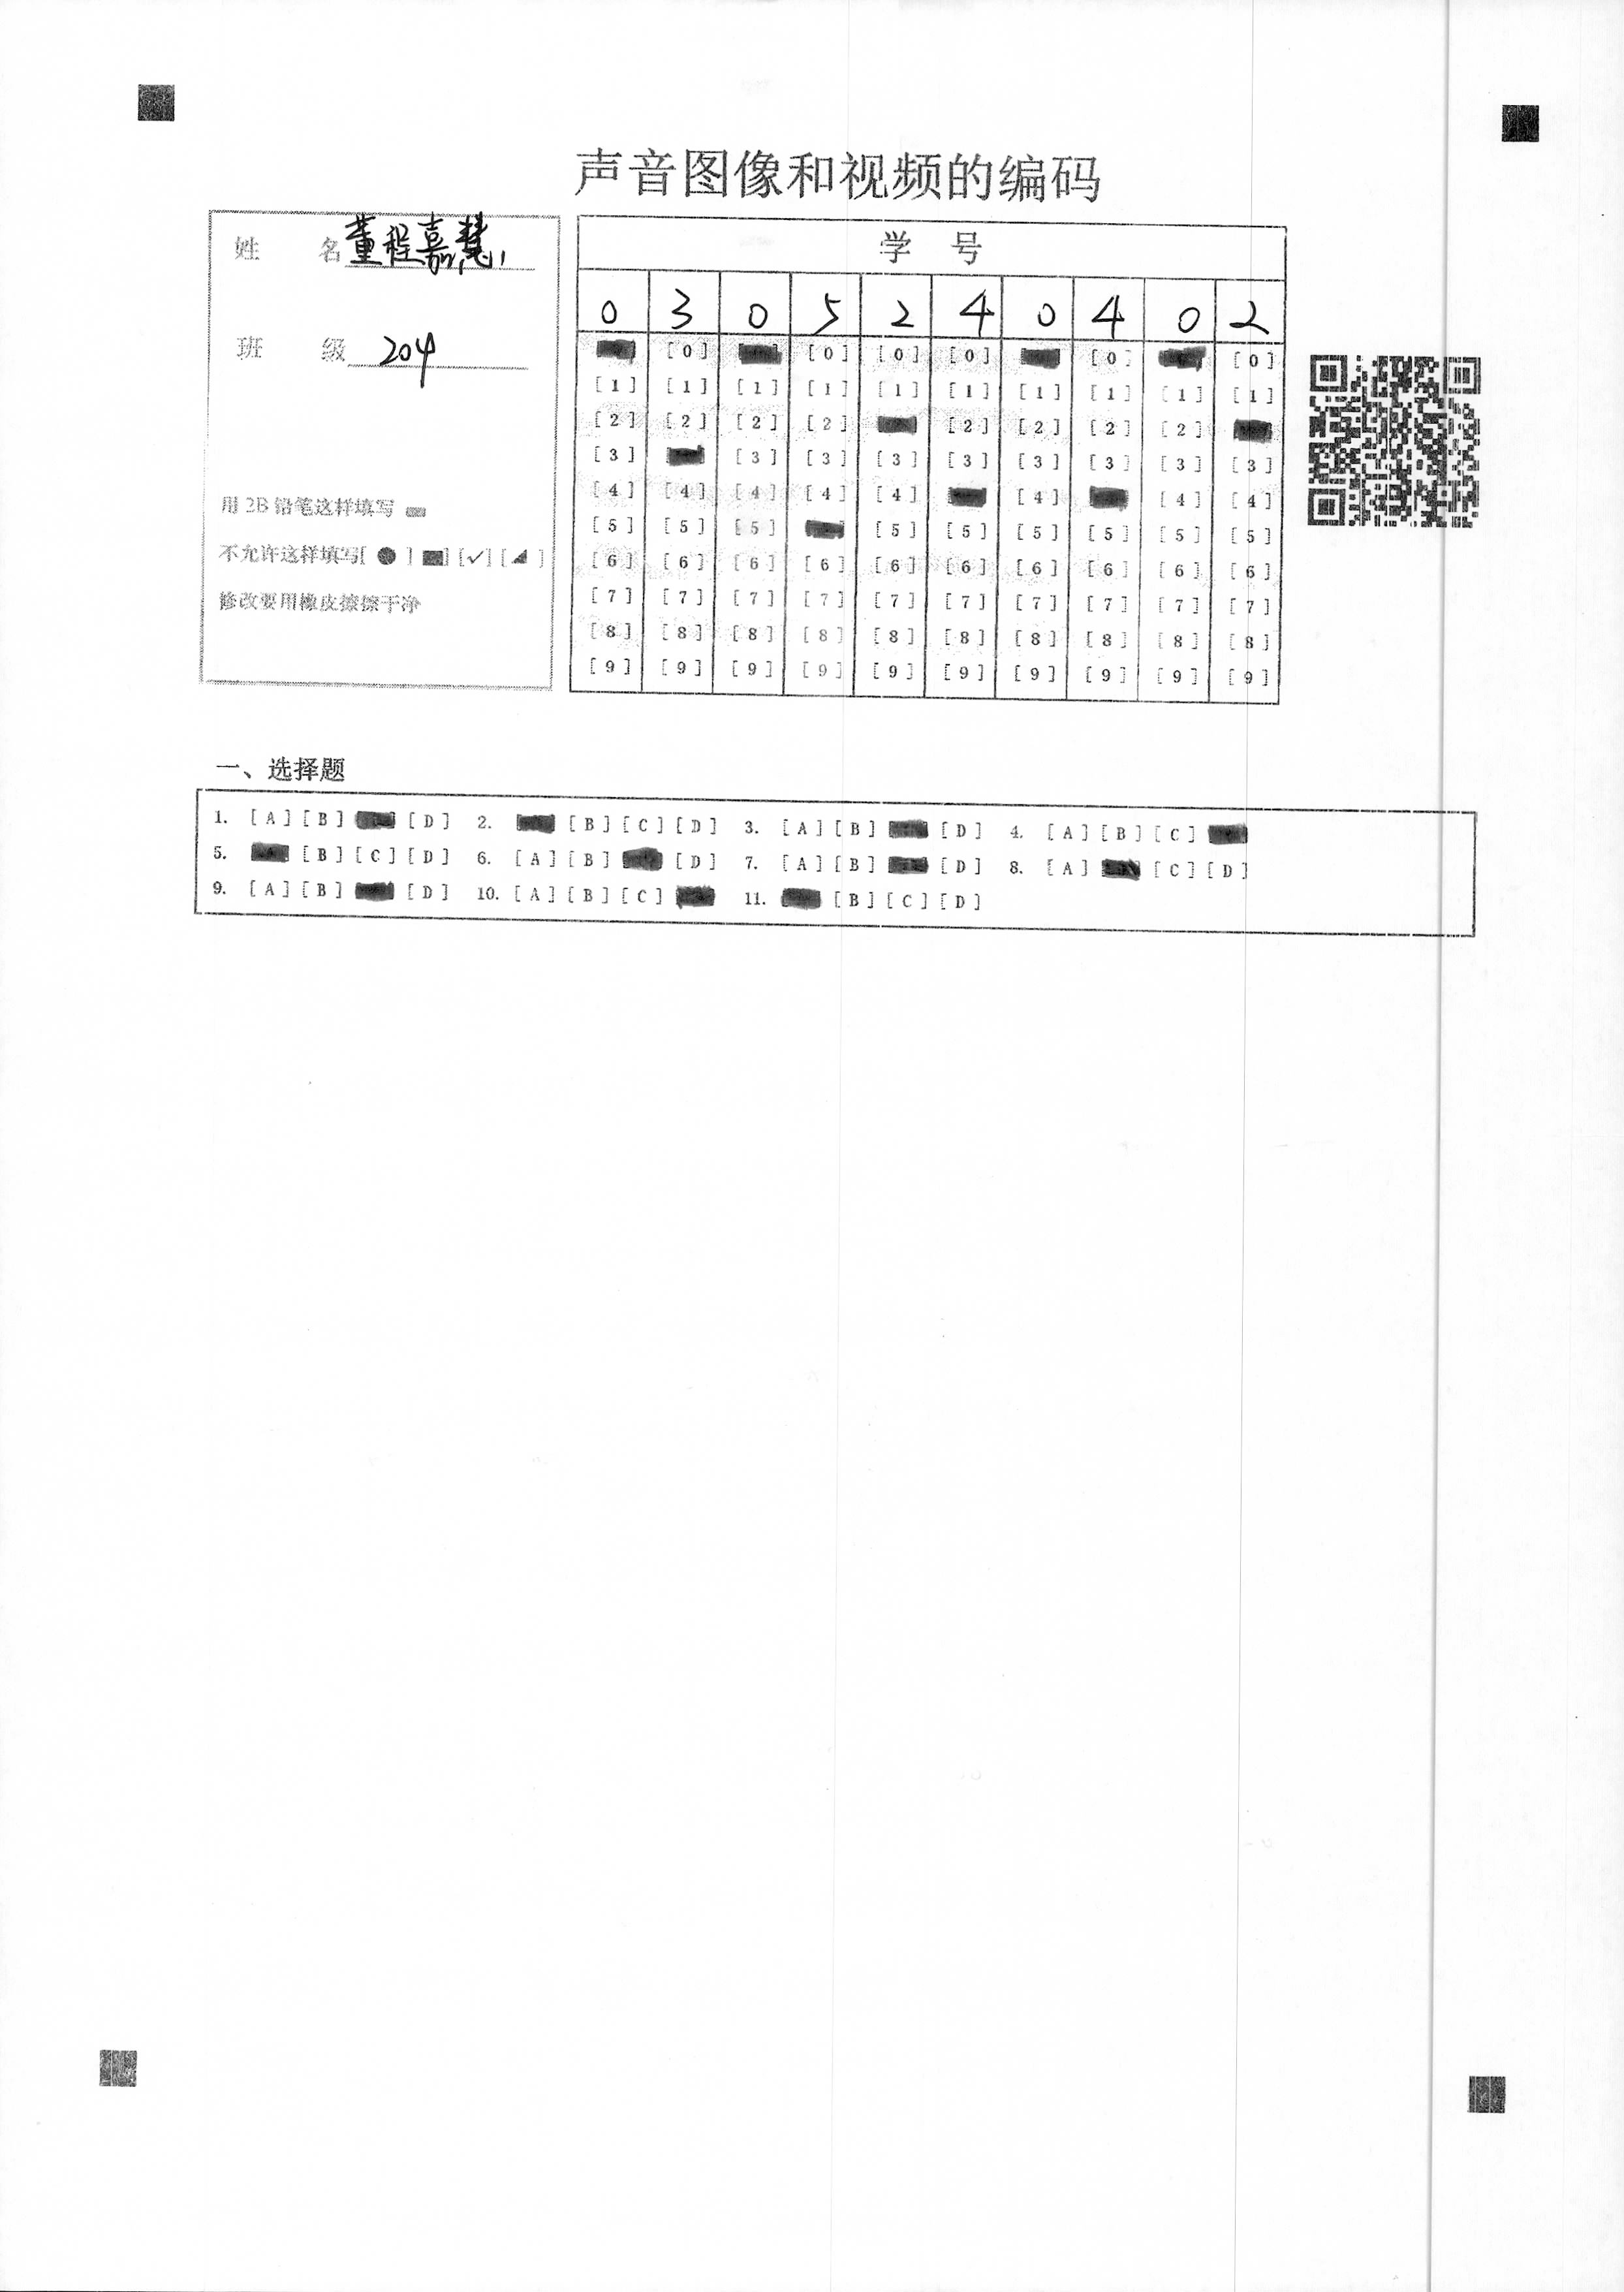 声音图像和视频的编码
姓 名 董程嘉慧
班 级 204
用 2B 铅笔这样填写
不允许这样填写[ ● ] [■] [✓] [◢ ]
修改要用橡皮擦擦干净
学 号
0 3 0 5 2 4 0 4 0 2
[0] [0] [0] [0] [0] [0]
[1] [1] [1] [1] [1] [1] [1] [1] [1] [1]
[2] [2] [2] [2] [2] [2] [2] [2]
[3] [3] [3] [3] [3] [3] [3] [3] [3]
[4] [4] [4] [4] [4] [4] [4] [4]
[5] [5] [5] [5] [5] [5] [5] [5] [5]
[6] [6] [6] [6] [6] [6] [6] [6] [6] [6]
[7] [7] [7] [7] [7] [7] [7] [7] [7] [7]
[8] [8] [8] [8] [8] [8] [8] [8] [8] [8]
[9] [9] [9] [9] [9] [9] [9] [9] [9] [9]
一、选择题
1. [A] [B] [D] 2. [B] [C] [D] 3. [A] [B] [D] 4. [A] [B] [C]
5. [B] [C] [D] 6. [A] [B] [D] 7. [A] [B] [D] 8. [A] [C] [D]
9. [A] [B] [D] 10. [A] [B] [C] 11. [B] [C] [D]